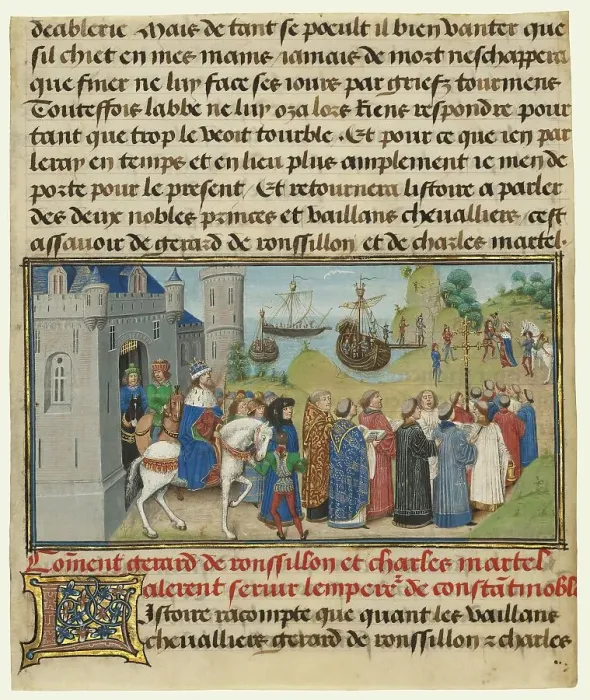 deablerie Mais de tant se poeult il bien vanter que
sil chiet en mes mains iamais de mort neschappera
que finer ne luy face ses iours par griefz tourmens
Touteffois labbe ne luy oza lors riens respondre pour
tant que trop le veoit tourble. Et pour ce que ien par
leray en temps et en lieu plus amplement ie men de
porte pour le present / Et retournera listoire a parler
des deux nobles princes et vaillans chevalliers cest
assavoir de gerard de roussillon et de charles martel.
Comment gerard de roussillon et charles martel
alerent servir lempere de constatinoble
Listoire racompte que quant les vaillans
chevalliers gerard de roussillon z charles